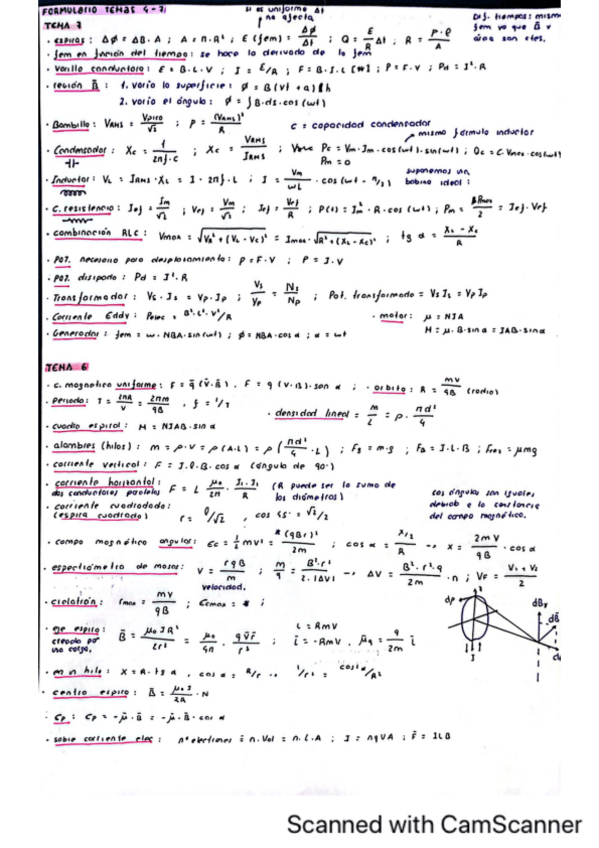 FORMULARIO TEMAS 4-7:
si es uniforme Δt no afecta
TEMA 7
Dif. tiempos: misma fem ya que B y
· espiras: Δφ = ΔB·A ; A = π·R² ; E (fem) = Δφ/Δt ; Q = E/R Δt ; R = P·l/A
· fem en función del tiempo: se hace la derivada de la fem
· Varilla conductora: E = B·L·V ; I = E/R ; F = B·I·L [N] ; P = F·V ; Pd = I²·R
· región B: 1. varia la superficie: φ = B(vt + a)h
2. varia el ángulo: φ = ∫B·ds·cos(ωt)
· Bombilla: VRMS = Vpico/√2 ; P = (VRMS)²/R
C = capacidad condensador
mismo fórmula inductor
· Condensador: Xc = 1/2πf·C ; Xc = VRMS/IRMS ; Pc = Vm·Im·cos(ωt)·sin(ωt) ; Qc = C·Vmax·cos(ωt)
Pm = 0
· Inductor: VL = IRMS·XL = I·2πf·L ; I = Vm/ωL · cos(ωt - π/2)
suponemos una bobina ideal:
· C. resistencia: Ief = Im/√2 ; Vef = Vm/√2 ; Ief = Vef/R ; P(t) = Im²·R·cos(ωt) ; Pm = Pmax/2 = Ief·Vef
· combinación RLC: Vmax = √VR² + (VL - VC)² = Imax·√R² + (XL - XC)² ; tg α = XL - XC/R
· Pot. necesaria para desplazamiento: P = F·V ; P = I·V
· Pot. disipada: Pd = I²·R
· Transformador: Vs·Is = Vp·Ip ; Vs/Vp = Ns/Np ; Pot. transformada = Vs Is = Vp Ip
· Corriente Eddy: = B²·L²·V²/R
· motor: μ = NIA
· Generador: fem = ω·NBA·sin(ωt) ; φ = NBA·cos α ; α = ωt
M = μ·B·sin α = IAB·sin α
TEMA 6
· C. magnetico uniforme: F = q(V·B), F = q(V·B)·sen α ; · orbita: R = mv/qB (radio)
· Periodo: T = 2πR/V = 2πm/qB , f = 1/T
· densidad lineal = m/L = ρ·πd²/4
· cuadro espiral: M = NIAB·sin α
· alambres (hilos): m = ρ·V = ρ(A·L) = ρ(πd²/4·L) ; Fg = m·g ; FB = I·L·B ; = μmg
· corriente vertical: F = I·l·B·cos α (ángulo de 90°)
· corriente horizontal: dos conductores paralelos F = L μ₀/2π · I₁·I₂/R (R puede ser la suma de los diámetros)
· corriente cuadrada: (espira cuadrada) r = l/√2 , cos 45° = √2/2
cos ángulos son iguales debido a la constancia del campo magnético.
· campo magnético angular: Ec = ½mv² = R(qBr)²/2m ; cos α = x/2/R → x = 2mV/qB · cos α
· espectrómetro de masas: V = rqB/m ; m/q = B²·r²/2·|ΔV| → ΔV = B²·r²·q/2m · n ; VF = V₁ + V₂/2
velocidad.
· ciclotrón: rmax = mv/qB ; Ecmax =
· eje espira: creado por una carga. B = μ₀IR²/2r³ = μ₀/4π · qVr/r³ ; L = RmV
L = -RmV, μq = q/2m L
· m n hilo: X = R·tg α , cos α = R/r → 1/r² = cos²α/R²
· centro espira: B = μ₀I/2R · N
· Ep: Ep = -μ·B = -μ·B·cos α
· sobre corriente elec: nº electrones = n·Vol = n·L·A ; I = nqVA ; F = ILB
dP
dBy
dB
I
Scanned with CamScanner